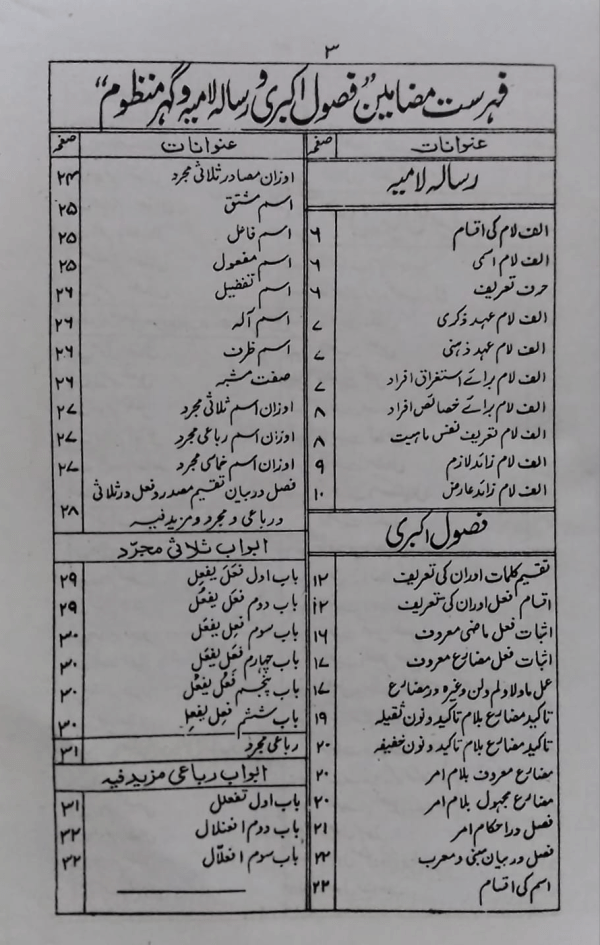 ۳
فہرست مضامین "فصول اکبری و رسالہ لامیہ و گہر منظوم"
عنوانات صفحہ
رسالہ لامیہ
الف لام کی اقسام ۶
الف لام اسمی ۶
حرف تعریف ۶
الف لام عہد ذکری ۷
الف لام عہد ذہنی ۷
الف لام برائے استغراق افراد ۷
الف لام برائے خصائص افراد ۸
الف لام تعریف نفس ماہیت ۸
الف لام زائد لازم ۹
الف لام زائد عارض ۱۰
فصول اکبری
تقسیم کلمات اور ان کی تعریف ۱۲
اقسام فعل اور ان کی تعریف ۱۲
اثبات فعل ماضی معروف ۱۶
اثبات فعل مضارع معروف ۱۷
عمل ما و لا و لم و لن و غیرہ در مضارع ۱۷
تاکید مضارع بلام تاکید و نون ثقیلہ ۱۹
تاکید مضارع بلام تاکید و نون خفیفہ ۲۰
مضارع معروف بلام امر ۲۰
مضارع مجہول بلام امر ۲۰
فصل در احکام امر ۲۱
فصل در بیان مبنی و معرب ۲۲
اسم کی اقسام ۲۲
عنوانات صفحہ
اوزان مصادر ثلاثی مجرد ۲۴
اسم مشتق ۲۵
اسم فاعل ۲۵
اسم مفعول ۲۵
اسم تفضیل ۲۶
اسم آلہ ۲۶
اسم ظرف ۲۶
صفت مشبہ ۲۶
اوزان اسم ثلاثی مجرد ۲۷
اوزان اسم رباعی مجرد ۲۷
اوزان اسم خماسی مجرد ۲۷
فصل در بیان تقسیم مصدر و فعل در ثلاثی
و رباعی و مجرد و مزید فیہ ۲۸
ابواب ثلاثی مجرّد
باب اول فَعَلَ یفعِل ۲۹
باب دوم فعَل یفعُل ۲۹
باب سوم فعِل یفعَل ۳۰
باب چہارم فعَل یفعَل ۳۰
باب پنجم فعُل یفعُل ۳۰
باب ششم فعِل یفعِل ۳۰
رباعی مجرد ۳۱
ابواب رباعی مزید فیہ
باب اول تفعلل ۳۱
باب دوم افعنلال ۳۲
باب سوم افعلّال ۳۲